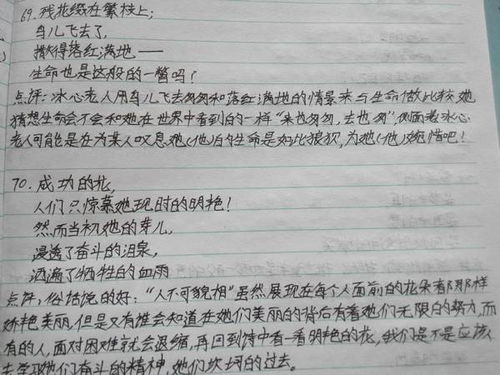 69.残花缀在繁枝上;
鸟儿飞去了,
撒得落红满地——
生命也是这般的一瞥吗?
点评:冰心老人用鸟儿飞去匆匆和落红满地的情景来与生命做比较,她
猜想生命会不会和她在世界中看到的一样“来也匆匆,去也匆”侧面老冰心
老人可能是在为某人叹息她(他)的生命是如此狼狈,为她(他)惋惜吧!
70.成功的花,
人们只惊慕她现时的明艳!
然而当初她的芽儿,
浸透了奋斗的泪泉,
洒遍了牺牲的血雨
点评:俗话说的好:“人不可貌相”虽然展现在每个人面前的花朵有那那样
娇艳美丽,但是又有谁会知道在她们美丽的背后有着她们无限的努力,而
有的人,面对困难就会退缩,再回到诗中看一看明艳的花,我们是不是应该
去学取她们奋斗的精神,她们坎坷的过去。